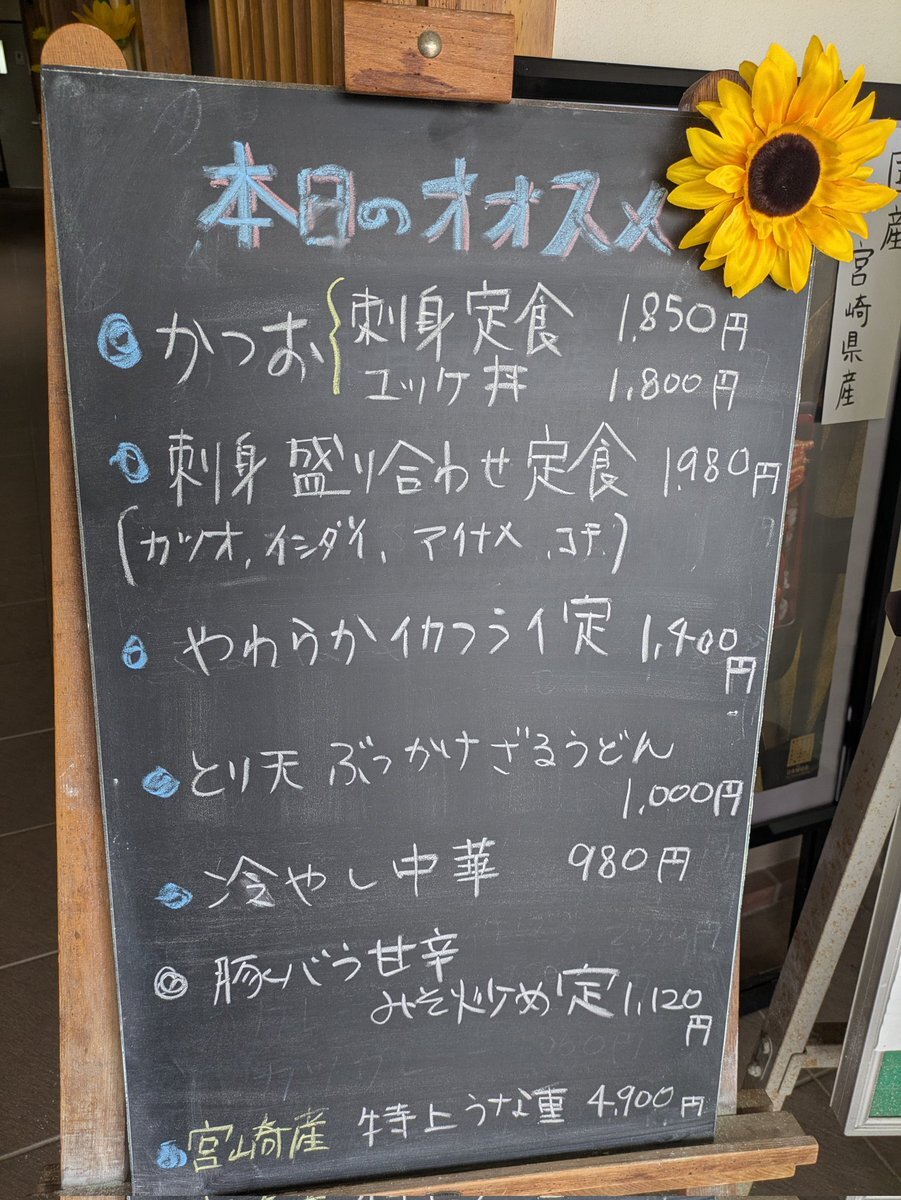 本日のオオスメ
かつお 刺身定食 1,850円
ユッケ丼 1,800円
刺身盛り合わせ定食 1,980円
(カツオ、イシダイ、アイナメ、コチ)
やわらかイカフライ定 1,400円
とり天ぶっかけざるうどん
1,000円
冷やし中華 980円
豚バラ甘辛
みそ炒め定 1,120円
宮崎産 特上うな重 4,900円
国産
宮崎県産